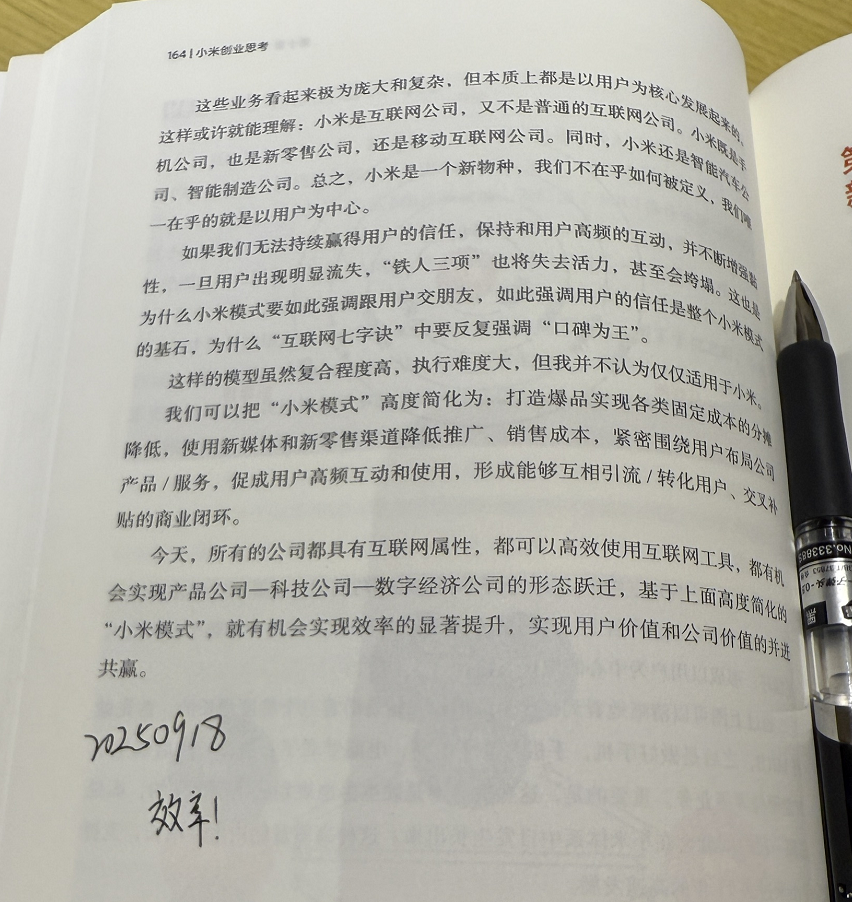 164 | 小米创业思考
这些业务看起来极为庞大和复杂，但本质上都是以用户为核心发展起来的，
这样或许就能理解：小米是互联网公司，又不是普通的互联网公司。小米既是手
机公司，也是新零售公司，还是移动互联网公司。同时，小米还是智能汽车公
司、智能制造公司。总之，小米是一个新物种，我们不在乎如何被定义，我们唯
一在乎的就是以用户为中心。
如果我们无法持续赢得用户的信任，保持和用户高频的互动，并不断增强黏
性，一旦用户出现明显流失，“铁人三项”也将失去活力，甚至会垮塌。这也是
为什么小米模式要如此强调跟用户交朋友，如此强调用户的信任是整个小米模式
的基石，为什么“互联网七字诀”中要反复强调“口碑为王”。
这样的模型虽然复合程度高，执行难度大，但我并不认为仅仅适用于小米。
我们可以把“小米模式”高度简化为：打造爆品实现各类固定成本的分摊
降低，使用新媒体和新零售渠道降低推广、销售成本，紧密围绕用户布局公司
产品 / 服务，促成用户高频互动和使用，形成能够互相引流 / 转化用户、交叉补
贴的商业闭环。
今天，所有的公司都具有互联网属性，都可以高效使用互联网工具，都有机
会实现产品公司—科技公司—数字经济公司的形态跃迁，基于上面高度简化的
“小米模式”，就有机会实现效率的显著提升，实现用户价值和公司价值的并进
共赢。
20250918
效率！